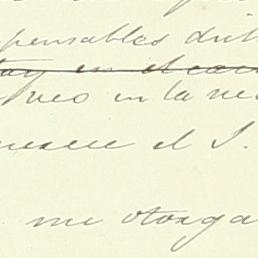 pensables dili
~~toy en el caso~~
veo en la ne
merece el S.
me otorga